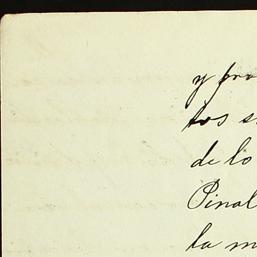 y pro
tos s
de lo
Pinal
la m